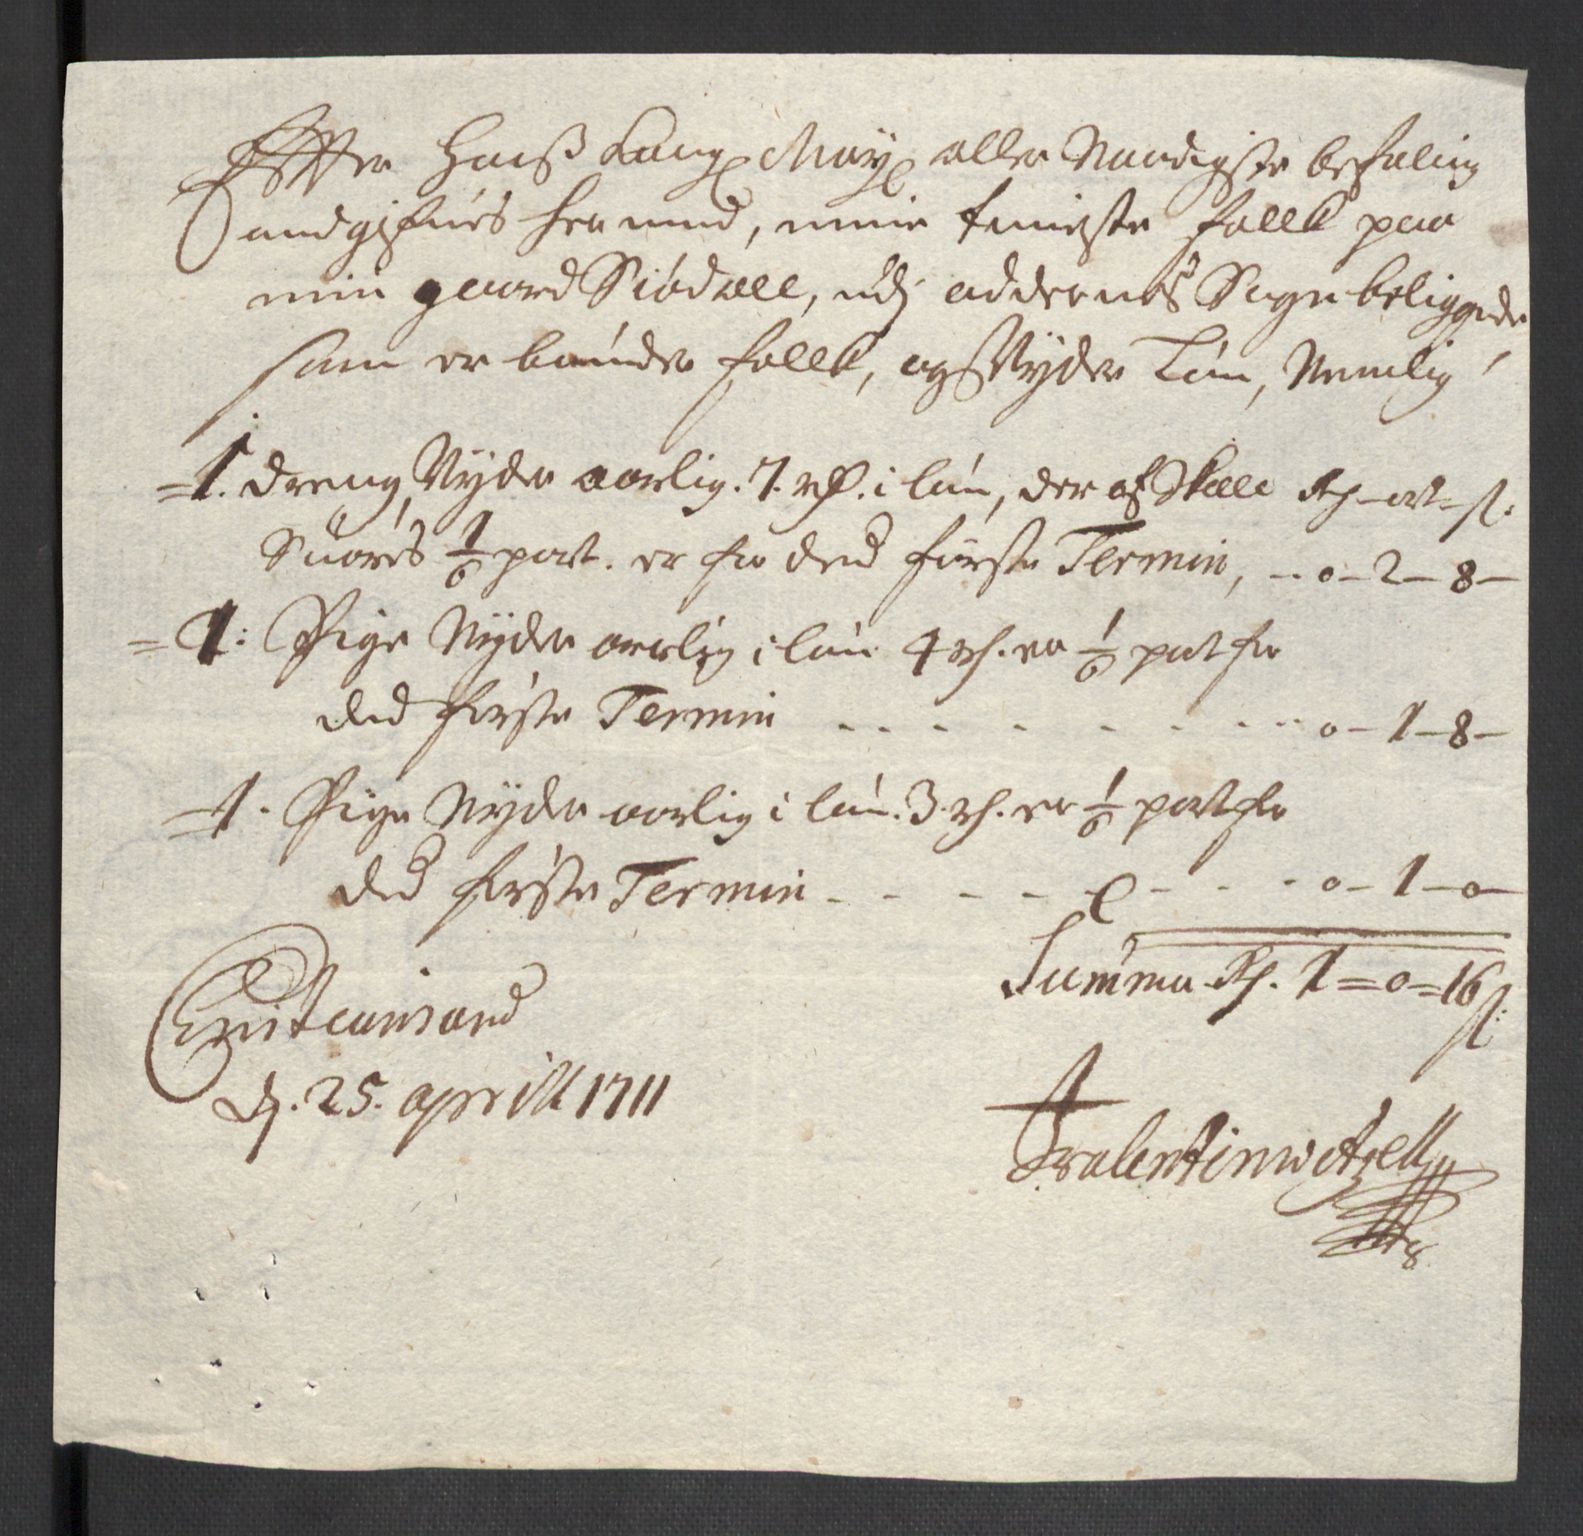 Effter Hanß Kong: May: aller Naadigste befaling
andgifues her med, mine tienniste follk paa
min gaard Siødall, udj oddernes Sogn beliggende
som er bønder follk, og Nyder Løn, Nemlig
1. dreng, Nyder aarlig. 7. rd. i løn, der af Skall Rd - ort - ſ:
Suaris 1/6 part. er for ded første Termin, - 0 - 2 - 8 -
1: Pige Nyder aarlig i løn 4 rd. er 1/6 part for
ded første Termin - - - - - - - 0 - 1 - 8 -
1. Pige Nyder aarlig i løn. 3 rd. er 1/6 part for
ded første Termin - - - - - - 0 - 1 - 0 -
Summa Rd. 1 = 0 = 16 ſ:
Cristiansand
d. 25. aprill 1711
Valentin wetzell